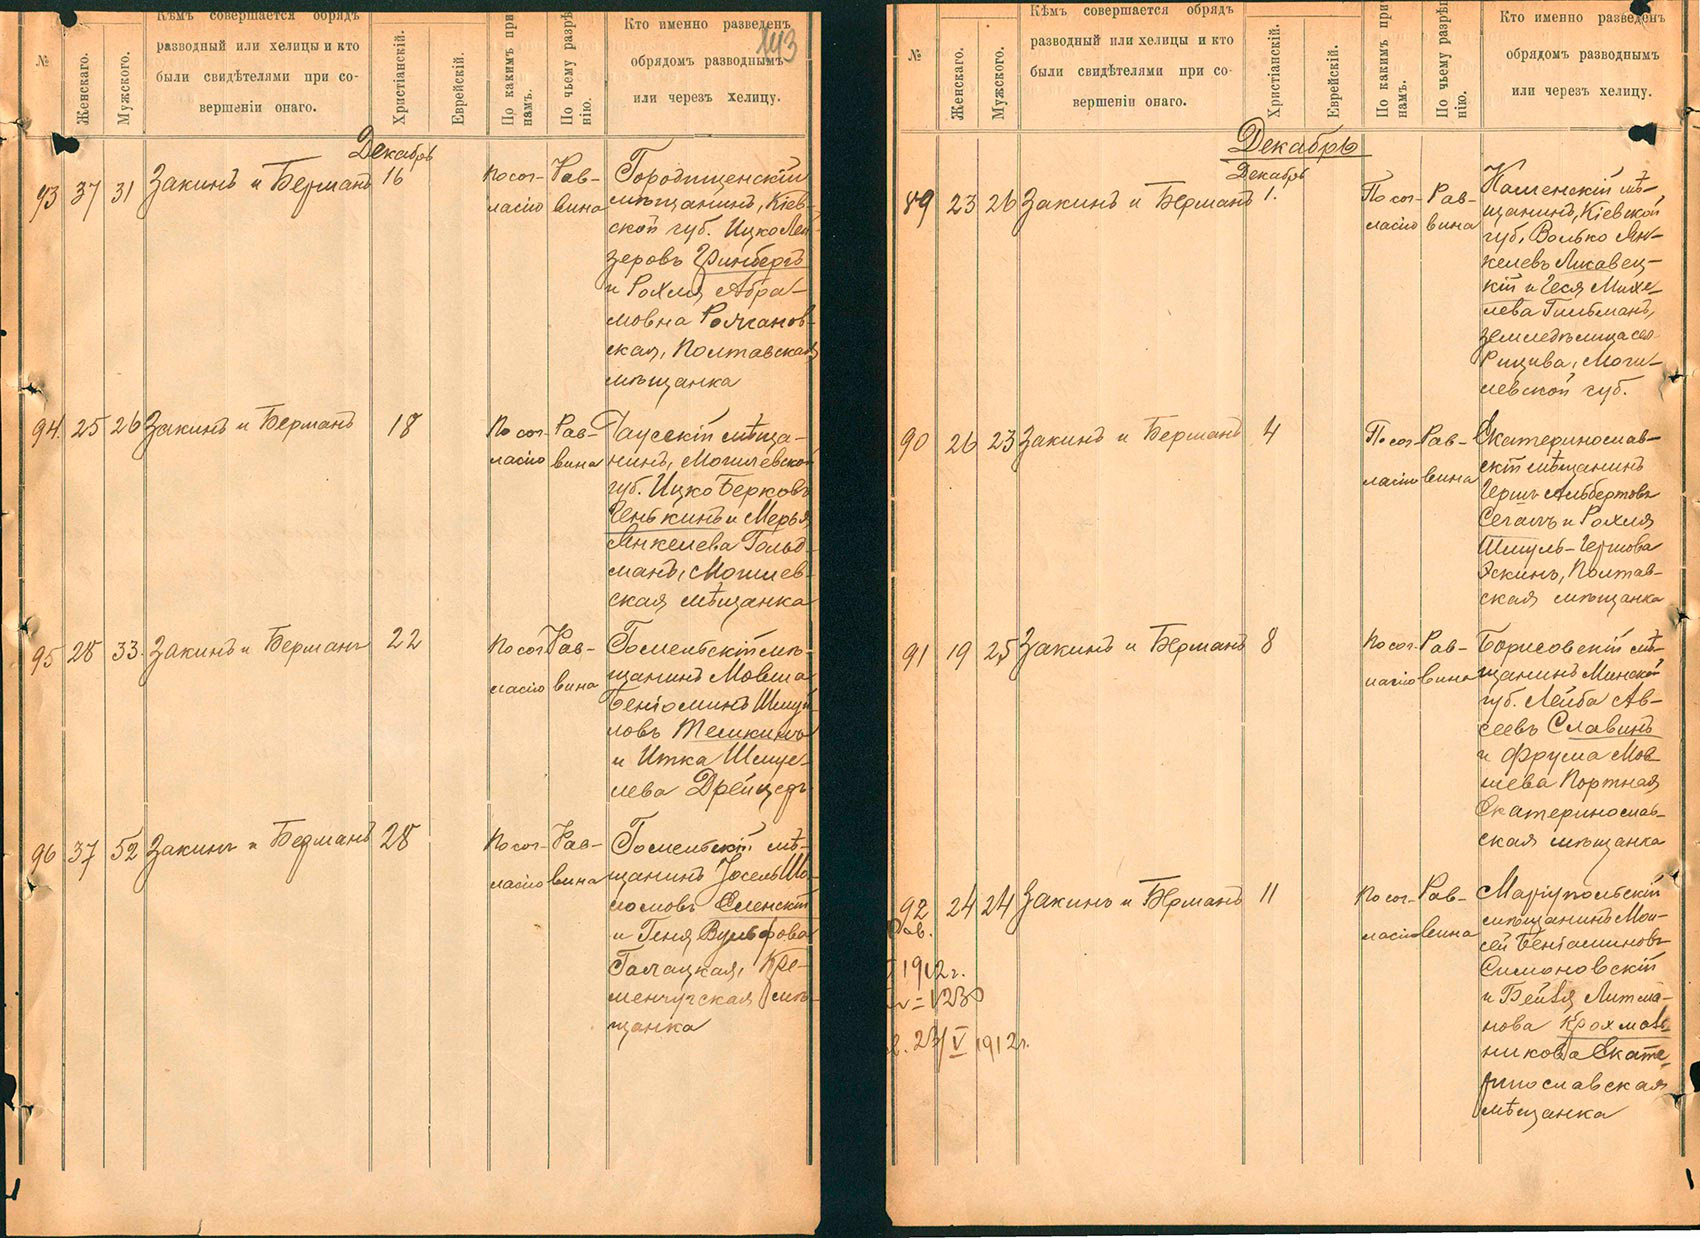 №
Женскаго.
Мужского.
Кѣмъ совершается обрядъ
разводный или хелицы и кто
были свидѣтелями при со-
вершеніи онаго.
Христіанскій.
Еврейскій.
По какимъ при
намъ.
По чьему разрѣ
нію.
Кто именно разведенъ
обрядомъ разводнымъ
или черезъ хелицу.
143
Декабрь
93 37 31 Закинъ и Берманъ 16
По сог-
ласію
Рав-
вина
Городищенскій
мѣщанинъ, Кіев-
ской губ. Ицко Лей-
зеровъ Финбергъ
и Рохля Абра-
мовна
ская, Полтавская
мѣщанка
94. 25 26 Закинъ и Берманъ 18
По сог-
ласію
Рав-
вина
Чаусскій мѣща-
нинъ, Могилевской
губ. Ицко Берковъ
Генькинъ и Мерья
Янкелева Гольд-
манъ, Могилев-
ская мѣщанка
95 28 33. Закинъ и Берманъ 22
По сог-
ласію
Рав-
вина
Гомельскій мѣ-
щанинъ Мовша
Беніоминъ Шмуй-
ловъ Темкинъ
и Итка Шмуе-
лева Дрейцеръ
96 37 52 Закинъ и Берманъ 28
По сог-
ласію
Рав-
вина
Гомельскій мѣ-
щанинъ Іосель Шо-
ломовъ Сленскій
и Геня Вульфова
Галацкая, Кре-
менчугская мѣ-
щанка
№
Женскаго.
Мужского.
Кѣмъ совершается обрядъ
разводный или хелицы и кто
были свидѣтелями при со-
вершеніи онаго.
Христіанскій.
Еврейскій.
По какимъ при
намъ.
По чьему разрѣ
нію.
Кто именно разведенъ
обрядомъ разводнымъ
или черезъ хелицу.
Декабрь
Декабрь
89 23 26 Закинъ и Берманъ 1.
По сог-
ласію
Рав-
вина
Каменскій мѣ-
щанинъ, Кіевской
губ. Волько Ян-
келевъ Ликавец-
кій и Геся Михе-
лева Гильманъ,
Моги-
левской губ.
90 26 23 Закинъ и Берманъ 4
По сог-
ласію
Рав-
вина
Екатеринослав-
скій мѣщанинъ
Гершъ Альбертовъ
Сегалъ и Рохля
Шмуль-Гершова
Эскинъ, Полтав-
ская мѣщанка
91 19 25 Закинъ и Берманъ 8
По сог-
ласію
Рав-
вина
Борисовскій мѣ-
щанинъ Минской
губ. Лейба Ав-
сеевъ Славинъ
и Фрума Мов-
шева Портная
Екатеринослав-
ская мѣщанка
92 24 24 Закинъ и Берманъ 11
1912 г.
1230
23/V 1912 г.
По сог-
ласію
Рав-
вина
Маріупольскій
мѣщанинъ Мои-
сей Беніаминовъ
Симоновскій
и Бейля Литма-
нова Крохмаль-
никова Екате-
ринославская
мѣщанка